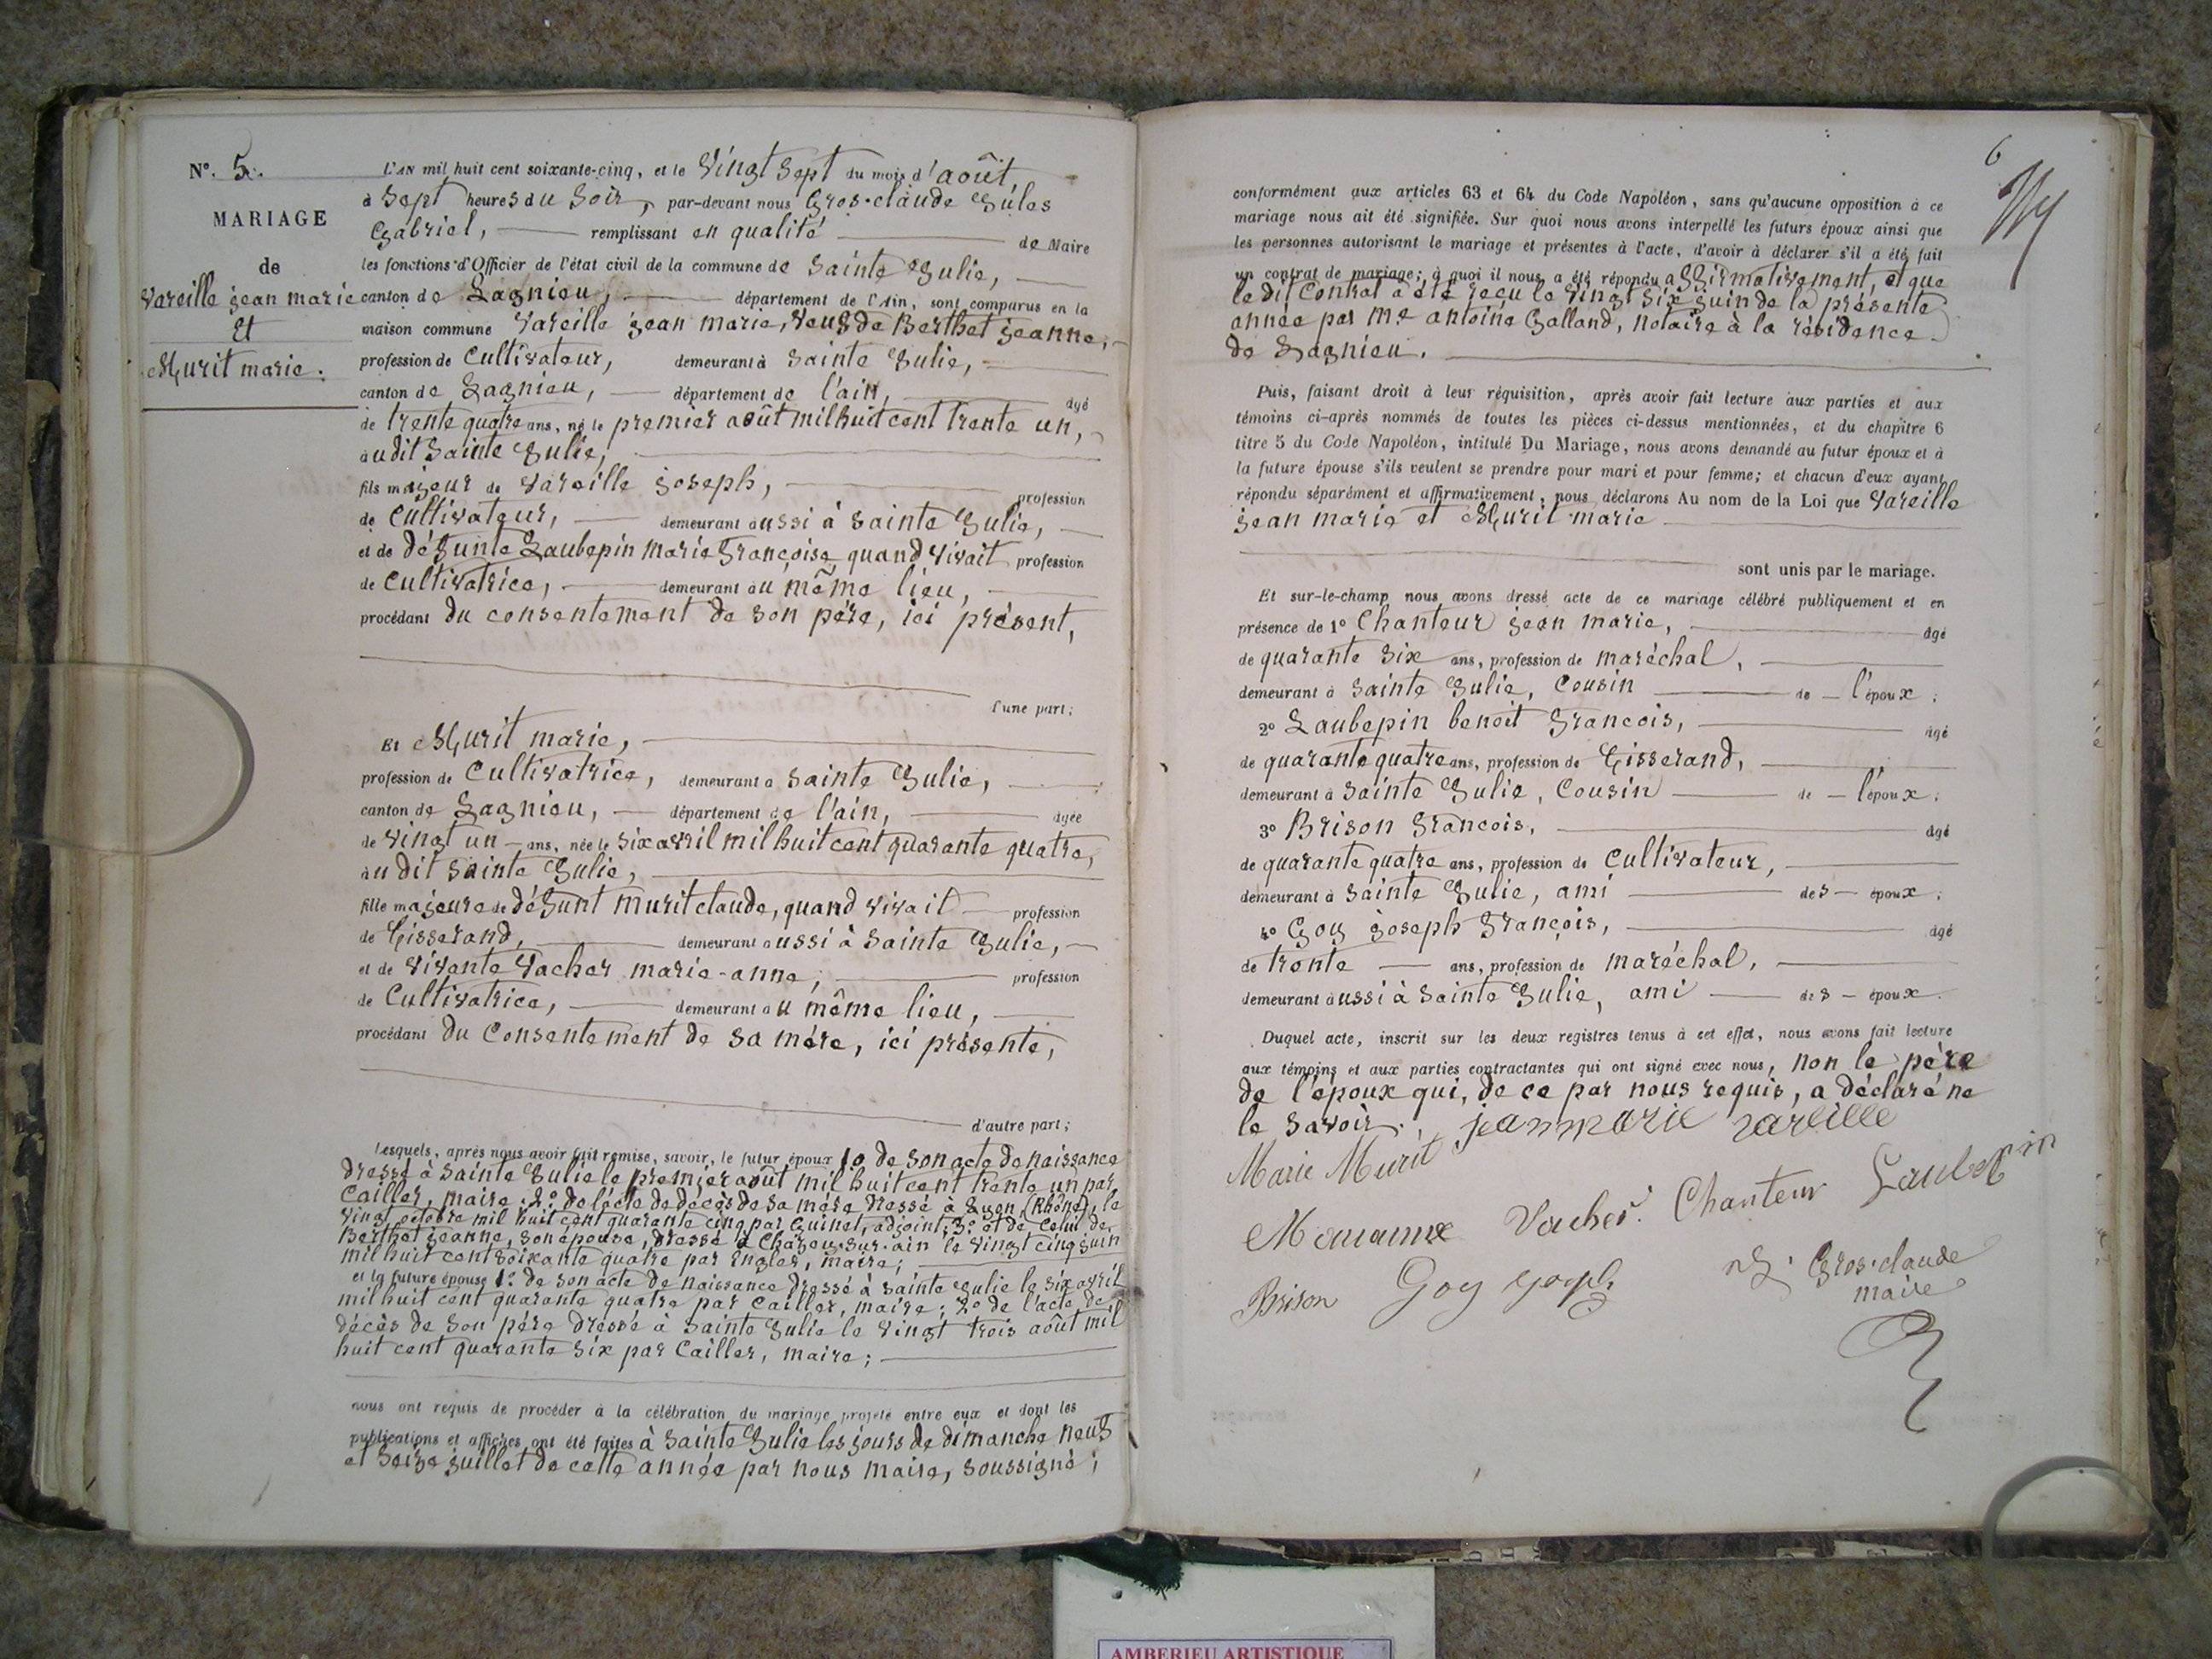 N°. 5.
MARIAGE
de
Vareille jean marie
Et
Murit marie.
L'AN mil huit cent soixante-cinq, et le Vingt Sept du mois d'août,
à Sept heures du Soir, par-devant nous Gros-claude Jules
Gabriel, remplissant en qualité de Maire
les fonctions d'Officier de l'état civil de la commune de Sainte Julie,
canton de Lagnieu, département de l'Ain, sont comparus en la
maison commune Vareille jean marie, Veuf de Berthet jeanne,
profession de Cultivateur, demeurant à Sainte Julie,
canton de Lagnieu, département de l'ain, âgé
de trente quatre ans, né le premier août mil huit cent trente un,
audit Sainte Julie,
fils majeur de Vareille joseph, profession
de Cultivateur, demeurant aussi à Sainte Julie,
et de défunte Laubepin marie françoise, quand vivait profession
de Cultivatrice, demeurant au même lieu,
procédant du consentement de son père, ici présent,
d'une part;
Et Murit marie,
profession de Cultivatrice, demeurant à Sainte Julie,
canton de Lagnieu, département de l'ain, âgée
de vingt un ans, née le Six avril mil huit cent quarante quatre,
au dit Sainte Julie,
fille majeure de défunt murit claude, quand vivait profession
de Tisserand, demeurant aussi à Sainte Julie,
et de vivante Vacher marie-anne, profession
de Cultivatrice, demeurant au même lieu,
procédant du Consentement de sa mère, ici présente,
d'autre part;
Lesquels, après nous avoir fait remise, savoir, le futur époux 1o de son acte de naissance
dressé à Sainte Julie le premier août mil huit cent trente un par
Cailler, maire; 2° de l'acte de décès de sa mère dressé à Lyon (Rhône), le
vingt octobre mil huit cent quarante cinq par Guinet, adjoint; 3° et de celui de
Berthet jeanne, son épouse, dressé à Chazey-sur-ain le vingt cinq juin
mil huit cent soixante quatre par Engler, maire;
et la future épouse 1° de son acte de naissance dressé à Sainte Julie le six avril
mil huit cent quarante quatre par Cailler, maire; 2° de l'acte de
décès de son père dressé à Sainte Julie le vingt trois août mil
huit cent quarante six par Cailler, maire;
nous ont requis de procéder à la célébration du mariage projeté entre eux et dont les
publications et affiches ont été faites à Sainte Julie les jours de dimanche neuf
et seize juillet de cette année par nous maire, soussigné;
6
conformément aux articles 63 et 64 du Code Napoléon, sans qu'aucune opposition à ce
mariage nous ait été signifiée. Sur quoi nous avons interpellé les futurs époux ainsi que
les personnes autorisant le mariage et présentes à l'acte, d'avoir à déclarer s'il a été fait
un contrat de mariage; à quoi il nous a été répondu affirmativement, et que
le dit Contrat a été reçu le vingt six juin de la présente
année par Me antoine Galland, notaire à la résidence
de Lagnieu.
Puis, faisant droit à leur réquisition, après avoir fait lecture aux parties et aux
témoins ci-après nommés de toutes les pièces ci-dessus mentionnées, et du chapitre 6
titre 5 du Code Napoléon, intitulé Du Mariage, nous avons demandé au futur époux et à
la future épouse s'ils veulent se prendre pour mari et pour femme; et chacun d'eux ayant
répondu séparément et affirmativement, nous déclarons Au nom de la Loi que Vareille
jean marie et Murit marie
sont unis par le mariage.
Et sur-le-champ nous avons dressé acte de ce mariage célébré publiquement et en
présence de 1° Chanteur jean marie, âgé
de quarante six ans, profession de maréchal,
demeurant à Sainte Julie, Cousin de l'époux;
2° Laubepin benoit francois, âgé
de quarante quatre ans, profession de Tisserand,
demeurant à Sainte Julie, Cousin de l'époux;
3° Brison francois, âgé
de quarante quatre ans, profession de Cultivateur,
demeurant à Sainte Julie, ami des époux;
4° Goy joseph françois, âgé
de trente ans, profession de maréchal,
demeurant aussi à Sainte Julie, ami des époux.
Duquel acte, inscrit sur les deux registres tenus à cet effet, nous avons fait lecture
aux témoins et aux parties contractantes qui ont signé avec nous, non le père
de l'époux qui, de ce par nous requis, a déclaré ne
le savoir. jeanmarie vareille
Marie Murit
Marianne Vacher Chanteur Laubepin
Brison Goy joseph Gros-claude
maire
AMBERIEU ARTISTIQUE